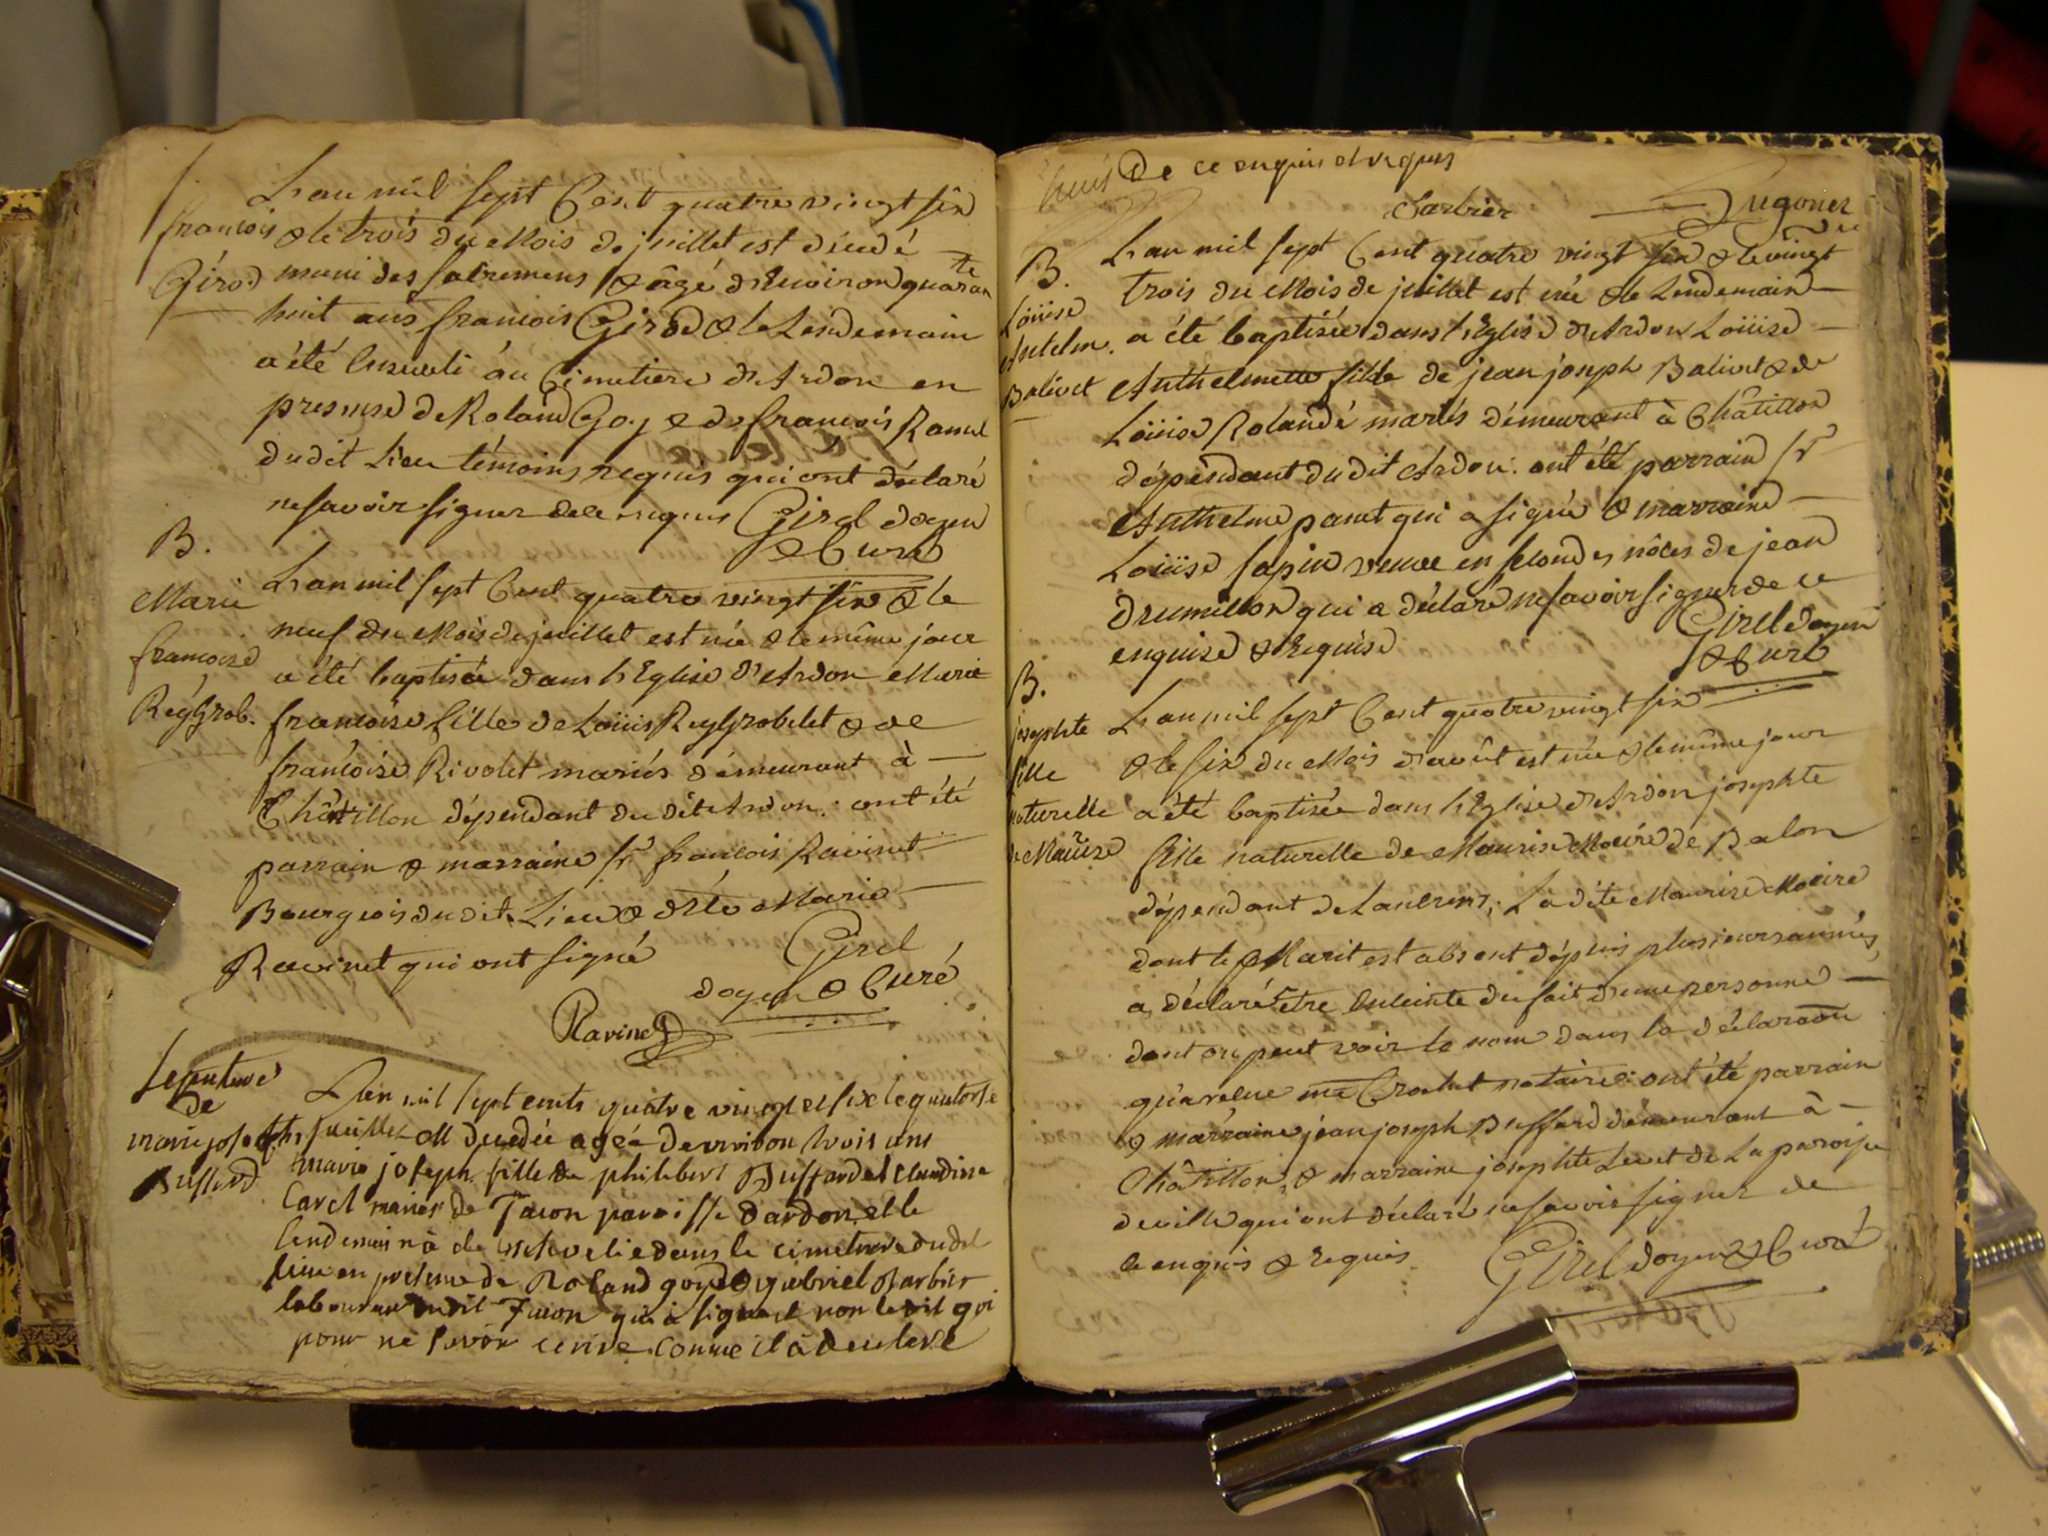 L'an mil sept Cent quatre vingt six
françois
& le trois du Mois de juillet est décédé
Girod
muni des sacremens & âgé d'Environ quarante
huit ans françois Girod & le Lendemain
a été Enseveli au Cimetiere d'Ardon en
presence de Roland Goy & de françois Ramel
dudit Lieu témoins requis qui ont déclaré
ne savoir signer de ce requis Girel doyen
& Curé
B.
Marie
françoise
ReyGrob.
L'an mil sept Cent quatre vingt six & le
neuf du Mois de juillet est née & le même jour
a été baptisée dans l'Eglise d'Ardon Marie
françoise fille de Loüis ReyGrobelet & de
françoise Rivolet mariés démeurant à
Châtillon dépendant du dit Ardon : ont été
parrain & marraine sr françois Ravinet
Bourgeois dudit Lieu & dlle Marie
Ravinet qui ont signé
Girel
doyen & Curé
Ravinet
Sepulture
de
marie joseph
Buffard
L'an mil sept cents quatre vingt et six le quatorse
juillet est decedée agée d'environ trois ans
marie joseph fille de philibert Buffard et claudine
Carel mariés de Tacon paroisse dardon et le
lendemain à été ensevelie dans le cimetiere dudit
lieu en presence de Roland goy et de gabriel Barbier
laboureur dudit Tacon qui à signé et non ledit goy
pour ne savoir ecrire comme il à declaré
De ce enquis et requis
Barbier
Dugoner
B.
Loüise
Antelm.
Balivet
L'an mil sept Cent quatre vingt six & le vingt
trois du Mois de juillet est née & le Lendemain
a été baptisée dans l'Eglise d'Ardon Loüise
Anthelmette fille de jean joseph Balivet & de
Loüise Rolandé mariés démeurant à Châtillon
dépendant dudit Ardon : ont été parrain sr
Anthelme panet qui a signé & marraine
Loüise sapin veuve en secondes nôces de jean
Drumillon qui a déclaré ne savoir signer de ce
enquise & Requise
Girel doyen
& Curé
B.
josephte
fille
naturelle
de Maurize
L'an mil sept Cent quatre vingt six
& le six du Mois d'août est née & le même jour
a été baptisée dans l'Eglise d'Ardon josephte
fille naturelle de Maurise Moüre de Balon
dépendant de Lancrens, La dite Maurise Moüre
dont le Marit est absent dépuis plusieurs années
a déclaré être Enceinte du fait d'une personne
dont on peut voir le nom dans la déclaraon
qu'a reçue me Crochet notaire : ont été parrain
& marraine jean joseph Buffard démeurant à
Châtillon, & marraine josephte Levet de La paroisse
de ville qui ont déclaré ne savoir signer de
ce enquis & requis
Girel doyen & Curé